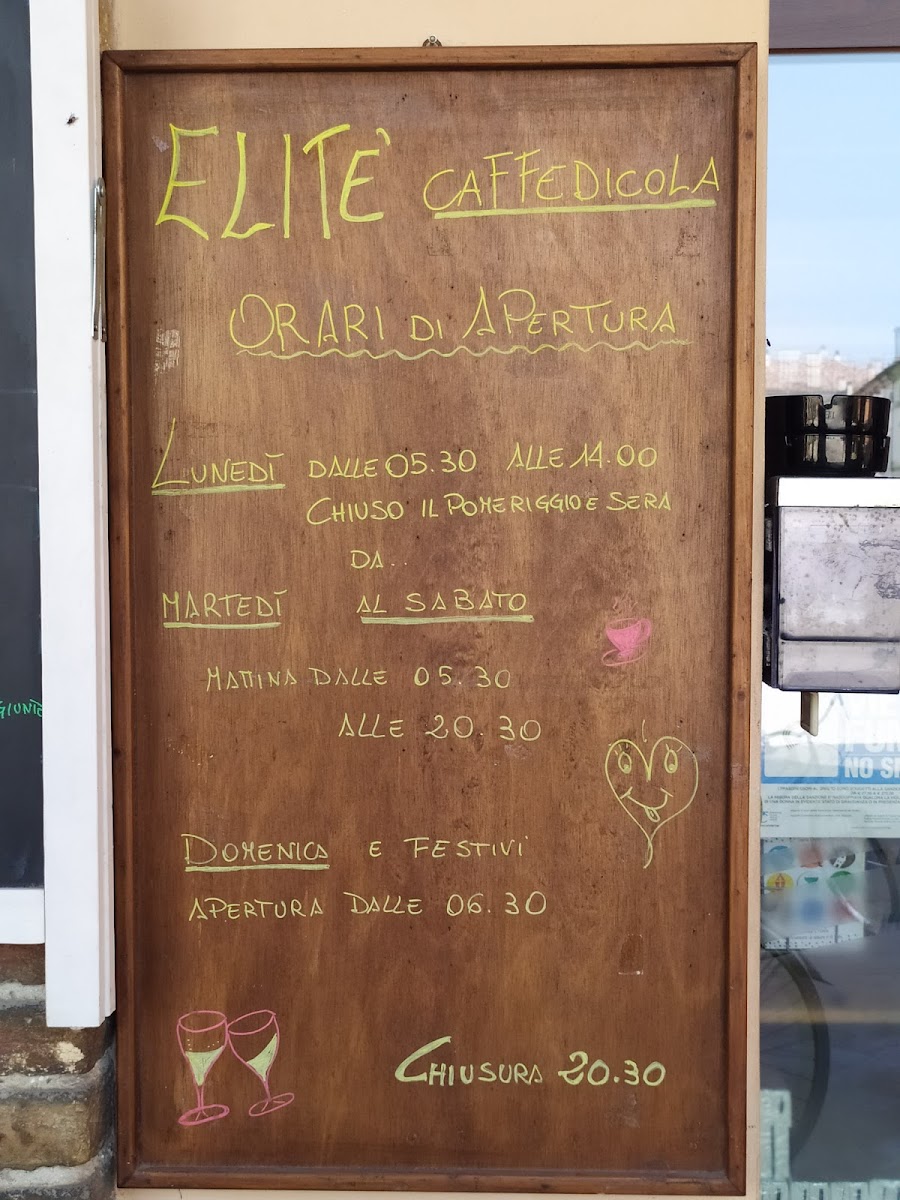 ELITE' CAFFEDICOLA
ORARI DI APERTURA
LUNEDÌ DALLE 05.30 ALLE 14.00
CHIUSO IL POMERIGGIO E SERA
DA..
MARTEDÌ AL SABATO
MATTINA DALLE 05.30
ALLE 20.30
DOMENICA E FESTIVI
APERTURA DALLE 06.30
CHIUSURA 20.30
GIUNTE